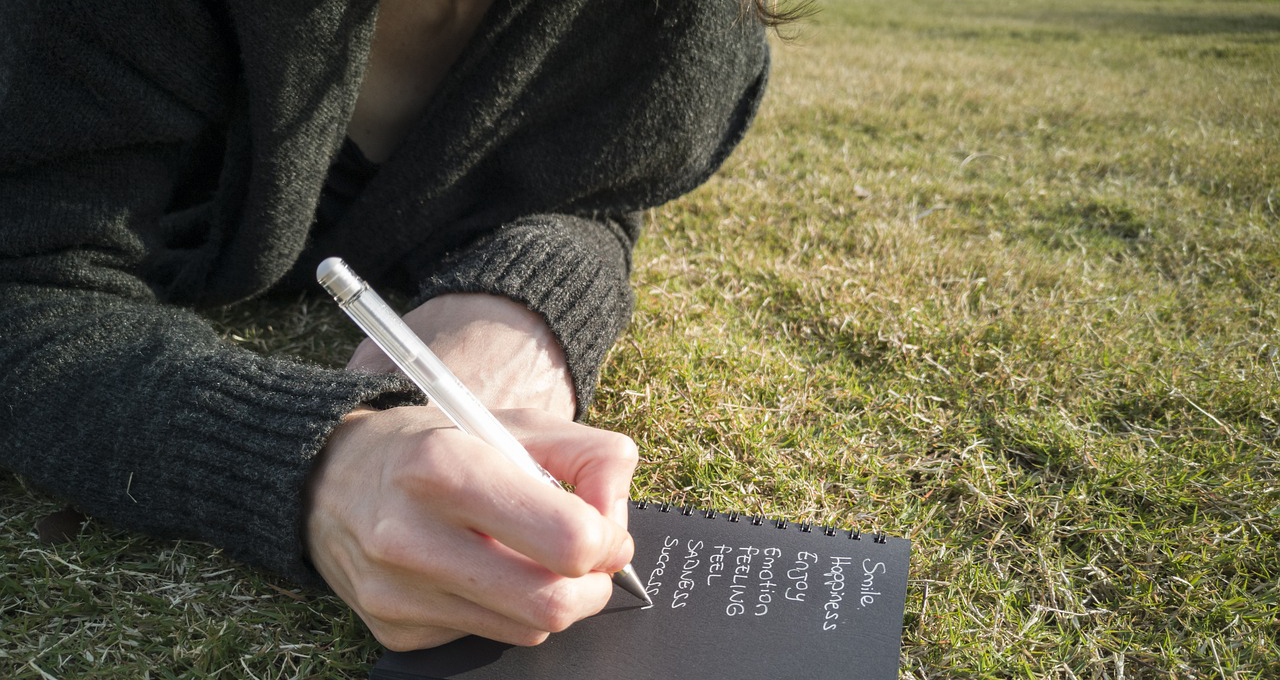 Smile
Happiness
Enjoy
Emotion
FEELING
FEEL
SADNESS
Success